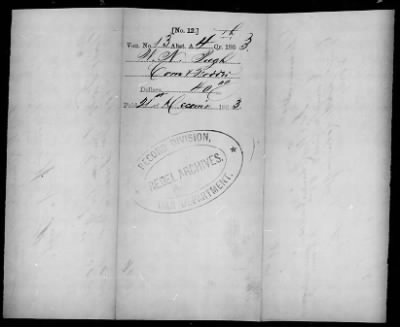 [No. 12.]
Vou. No. 13 Abst. A. 4th Qr. 1863.
W. N. Pugh
Corn & Fodder
Dollars,
Paid 21st Decem 1863.
RECORD DIVISION,
REBEL ARCHIVES,
WAR DEPARTMENT.